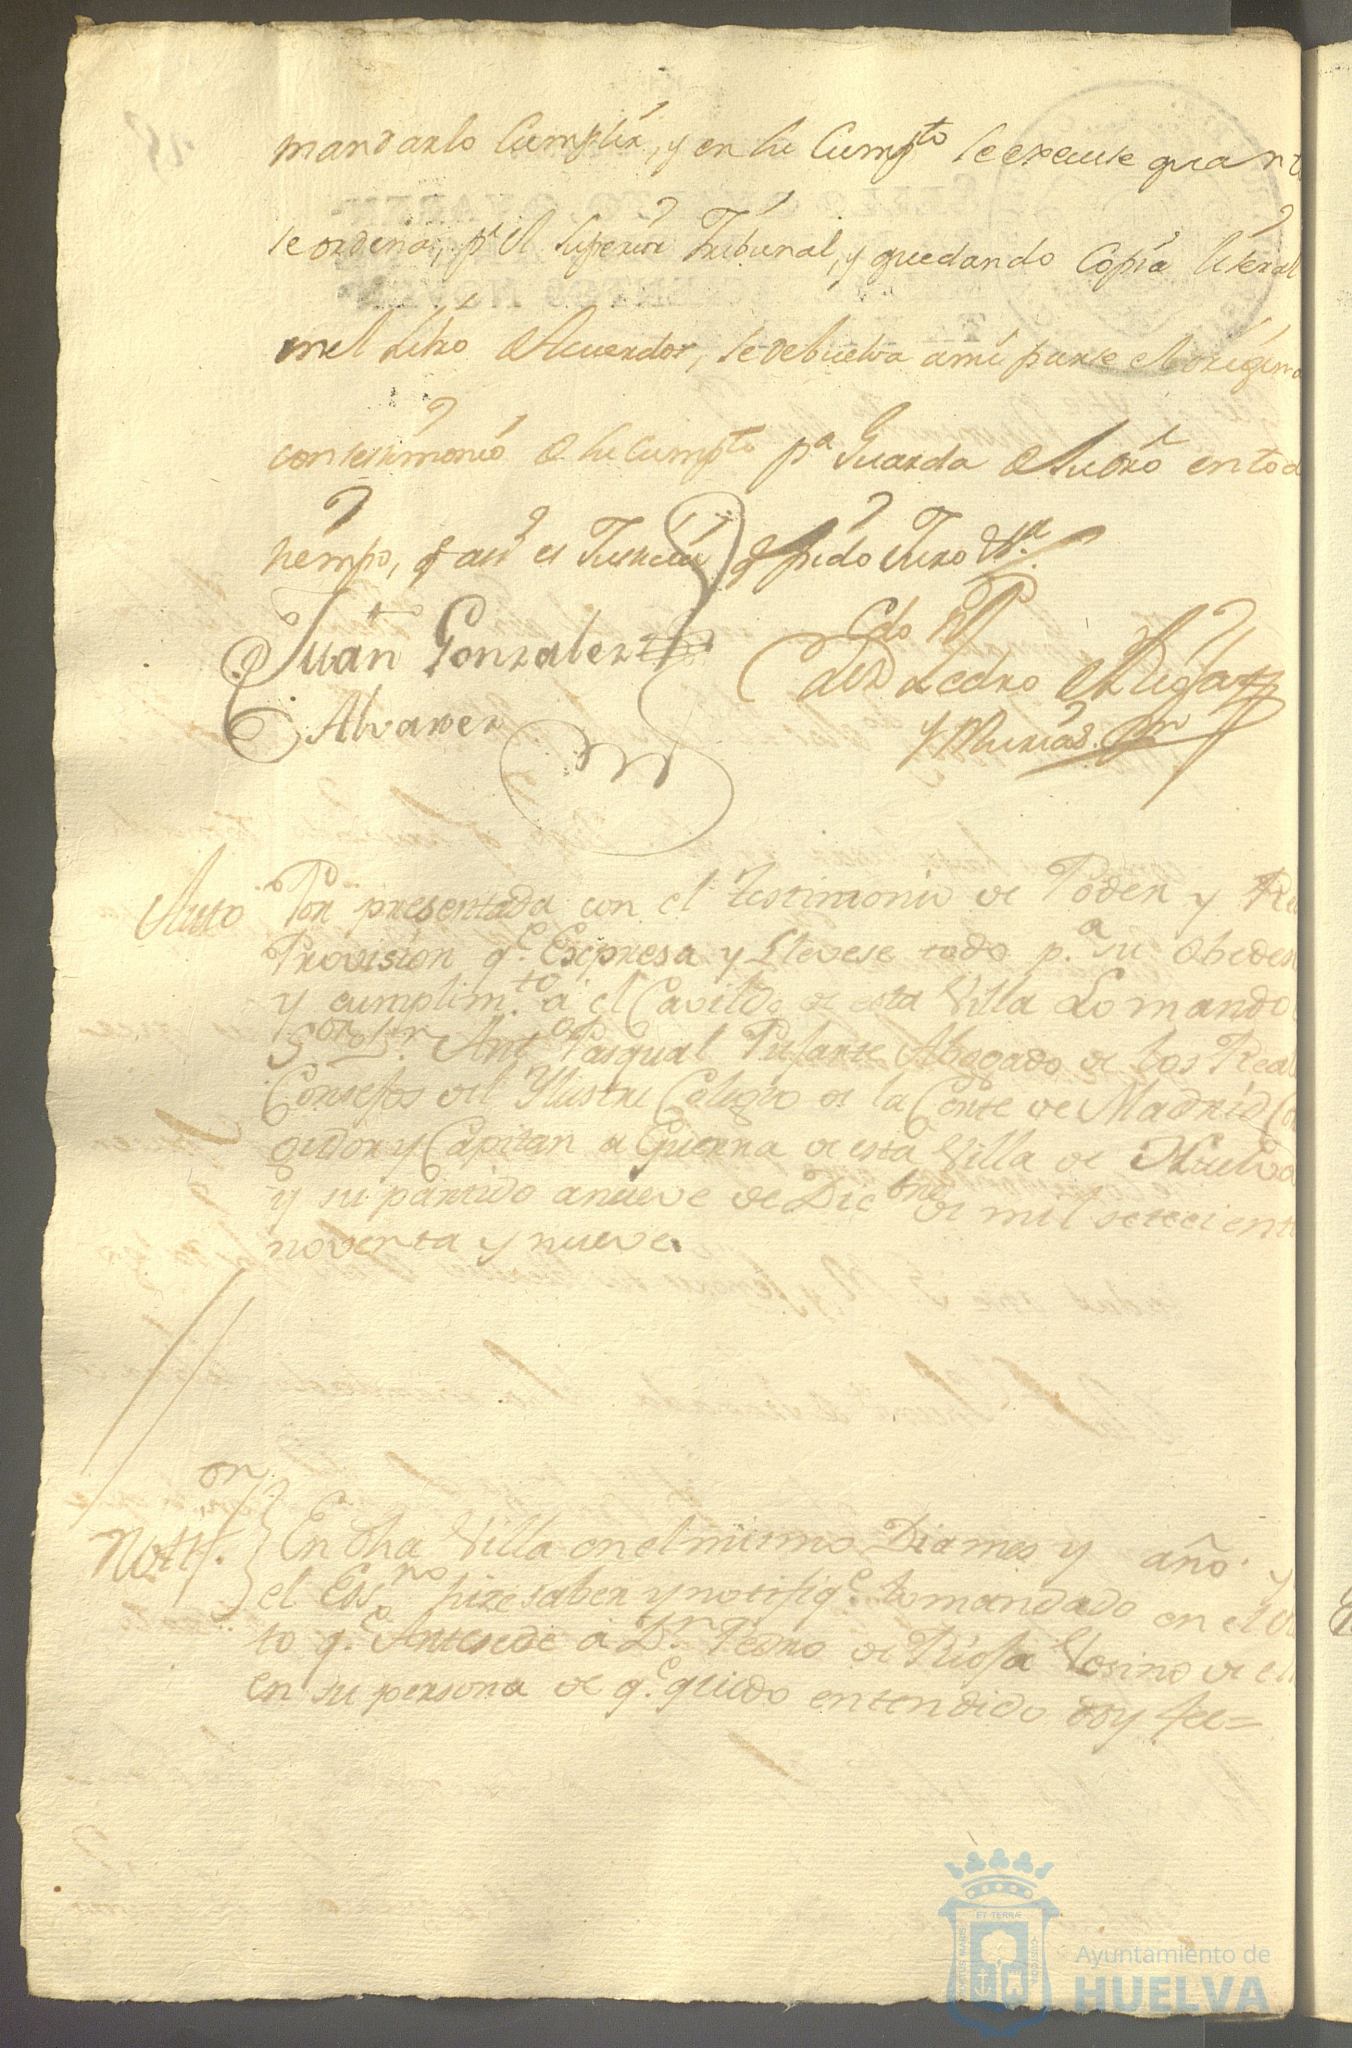 mandarlo Cumplir, y en su Cumpto se execute quant
se ordena, pr el Superior Tribunal, y quedando Copia literal
en el Libro de Acuerdos, se debuelva a mi parte el origina
con testimonio de su Cumpto pa Guarda de su dro en tod
tiempo, q asi es Justicia q pido Juro &a.
Juan Gonzalez
Alvarez
Ldo Dn
Pedro de
y
Auto Por presentada con el testimonio de Poder y Rl
Provision q.e Expresa y Llevese todo p.a su Obedes
y cumplim.to a el Cavildo de esta Villa Lo mando
S.or Ldo Dn Anto Pasqual Pusarte Abogado de los Real
Consejos del Ylustre Colegio de la Corte de Madrid Co
gidor y Capitan a Guerra de esta Villa de Huelva
y su partido a nueve de Dicbre de mil setecient
noventa y nueve.
Notif.on En dha Villa en el mismo Dia mes y año y
el Ess.no hize saber y notifiq.e lo mandado en el au
to q.e Antesede a Dn Pedro de Riosa Vesino de ell
en su persona de q.e quedo entendido doy fee=
Ayuntamiento de
HUELVA